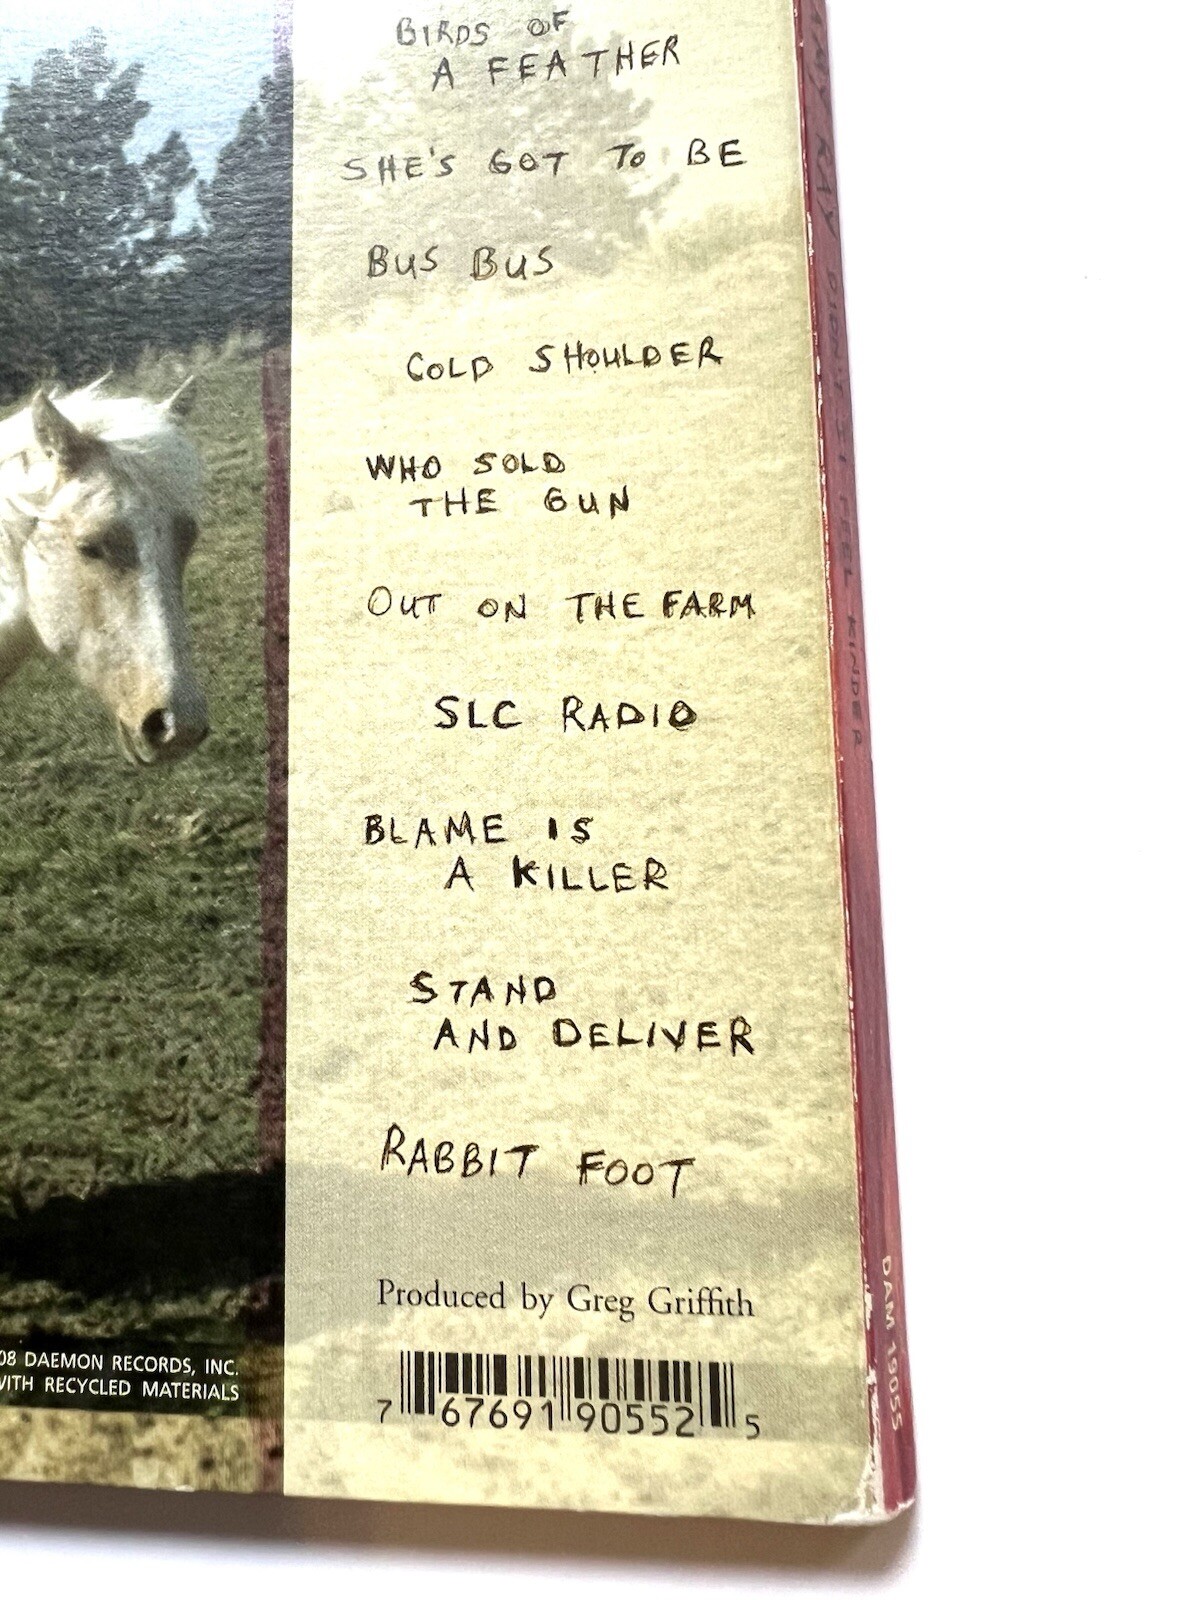 BIRDS OF
A FEATHER
SHE'S GOT TO BE
BUS BUS
COLD SHOULDER
WHO SOLD
THE GUN
OUT ON THE FARM
SLC RADIO
BLAME IS
A KILLER
STAND
AND DELIVER
RABBIT FOOT
Produced by Greg Griffith
7 67691 90552 5
08 DAEMON RECORDS, INC.
WITH RECYCLED MATERIALS
AMY RAY DIDN'T IT FEEL KINDER
DAM 19055